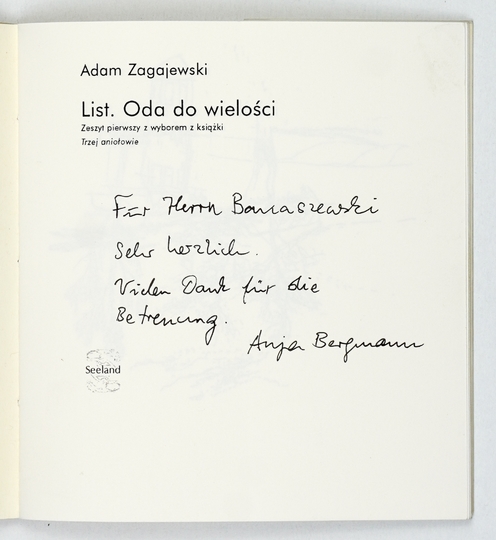 Adam Zagajewski
List. Oda do wielości
Zeszyt pierwszy z wyborem z książki
Trzej aniołowie
Für Herrn Bomaszewski
Sehr herzlich.
Vielen Dank für die
Betreuung.
Anja Bergmann
Seeland